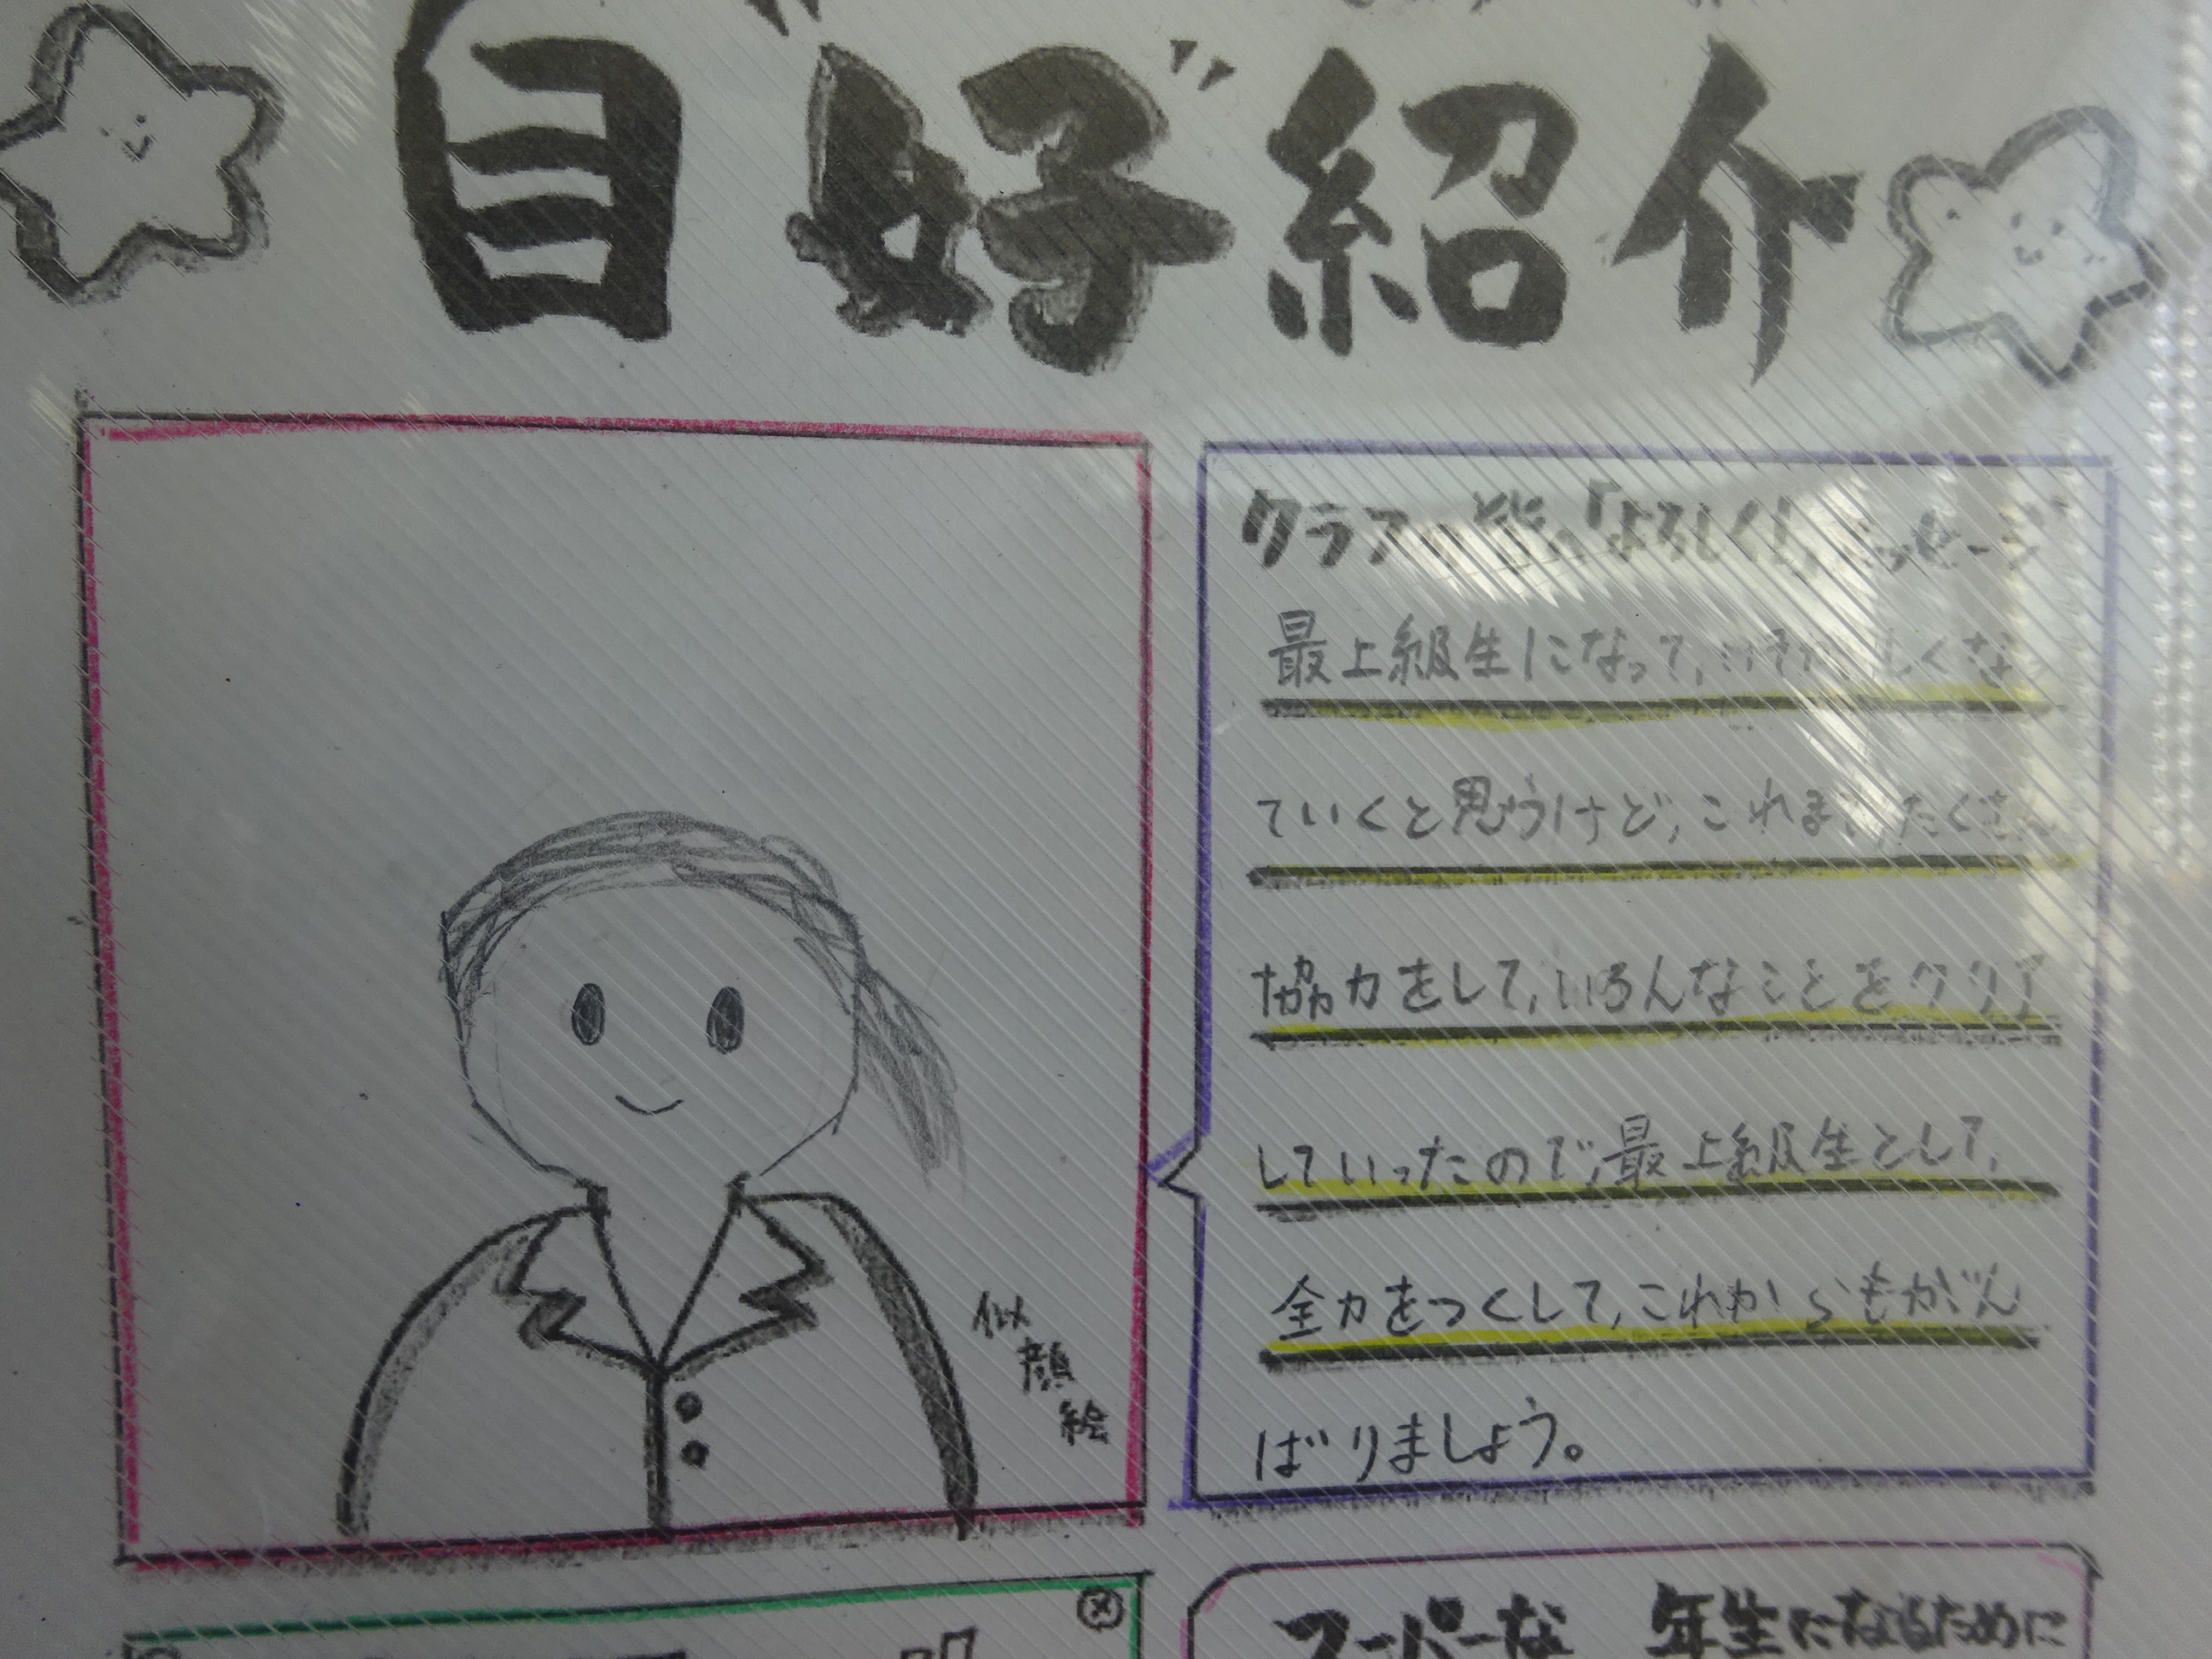 自"好"紹介
クラスの皆へ「よろしく」メッセージ
最上級生になって、いそがしくなっ
ていくと思うけど、これまでたくさん
協力をして、いろんなことをクリア
していったので、最上級生として、
全力をつくして、これからもがん
ばりましょう。
似顔絵
スーパーな 年生になるために